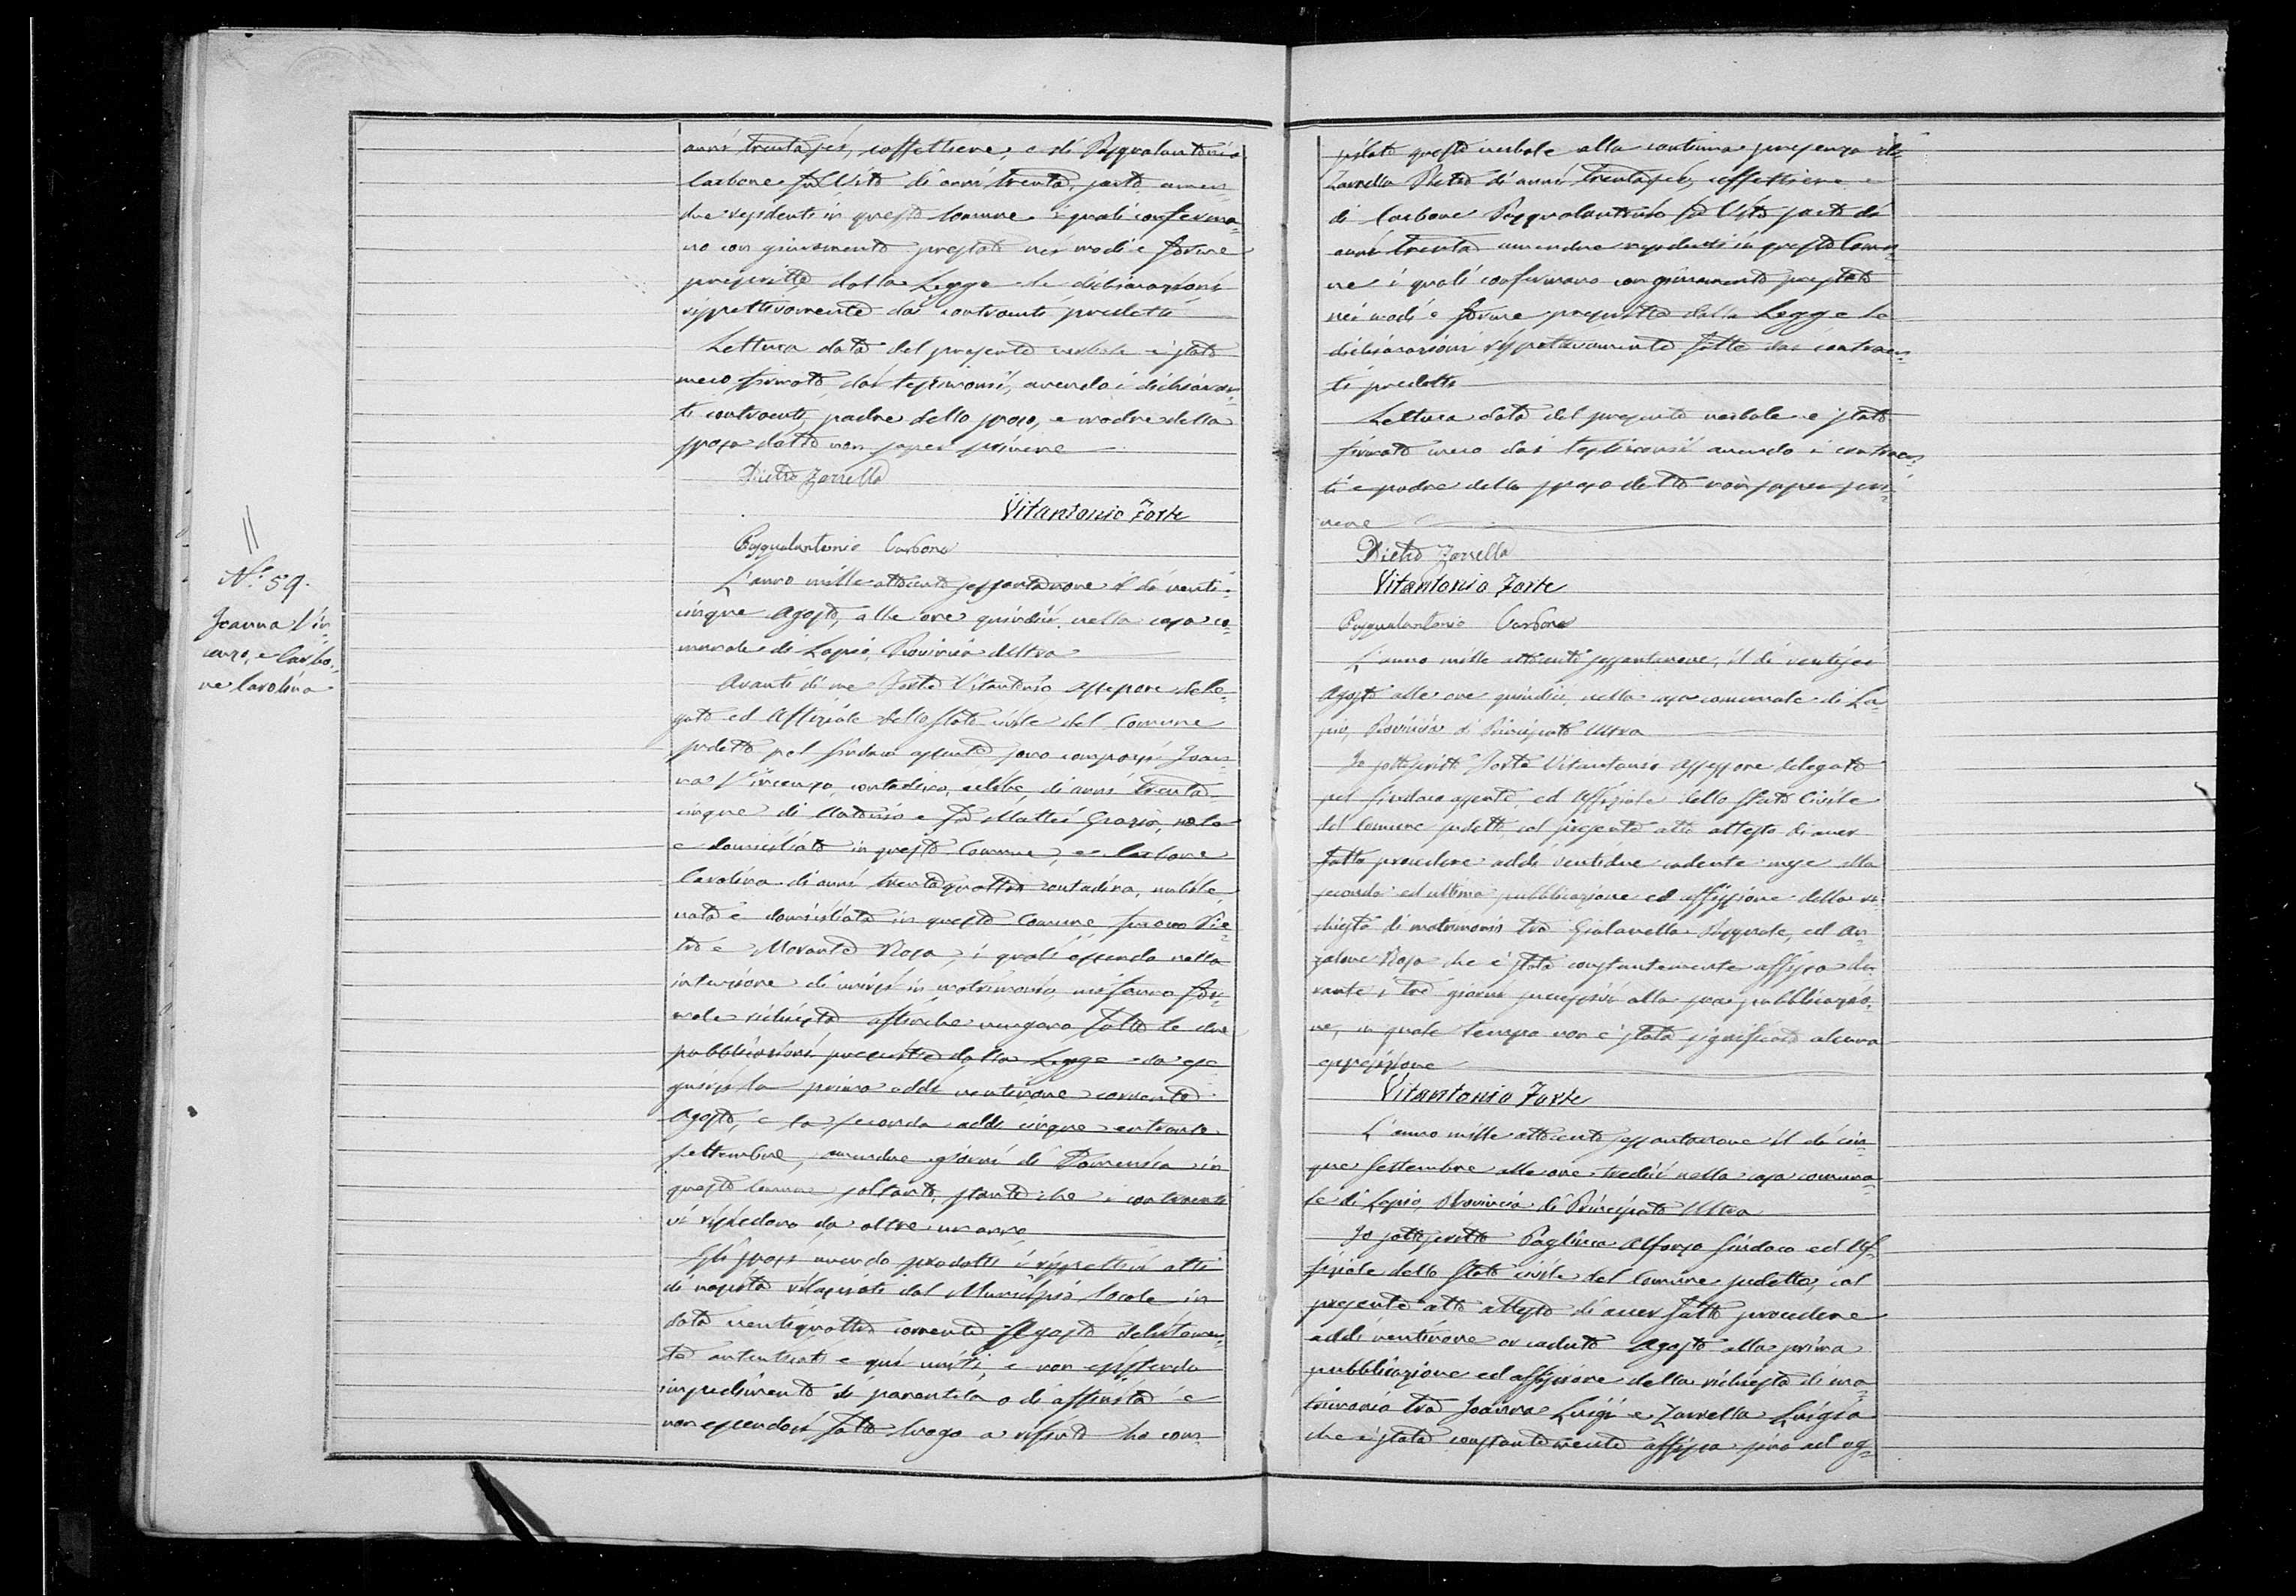 anni trentasei, caffettiere, e di Pasqualantonio
Carbone fu Vito di anni trenta, sarto amen=
due residenti in questo Comune i quali conferma=
no con giuramento prestato nei modi e forme
prescritte dalla Legge le dichiarazioni
rispettivamente dai contraenti predetti
Lettura data del presente verbale è stato
meco firmato dai testimonii, avendo i dichiaran=
ti contraenti, padre dello sposo, e madre della
sposa detto non saper scrivere
Pietro Zarrella
Vitantonio Forte
Pasqualantonio Carbone
N.º 59.
Joanna Vin=
cenzo, e Carbo=
ne Carolina
L'anno mille ottocento sessantanove il dì venti=
cinque Agosto, alle ore quindici nella casa co=
munale di Lapio, Provincia Ultra
Avanti di me Forte Vitantonio Assessore dele=
gato ed Uffiziale dello Stato civile del Comune
sudetto pel Sindaco assente sono comparsi Joan=
na Vincenzo, contadino, celibe, di anni trenta
cinque di Antonio e fu Mattei Grazia, nato
e domiciliato in questo Comune, e Carbone
Carolina di anni trentaquattro contadina, nubile
nata e domiciliata in questo Comune, furono Pie=
tro e Morante Rosa, i quali essendo nella
intenzione di unirsi in matrimonio, mi fanno for=
male richiesta affinchè vengano fatte le due
pubblicazioni prescritte dalla Legge da ese
guirsi la prima addì ventinove corrente
Agosto, e la seconda addì cinque entrante
Settembre, amendue giorni di Domenica in
questo Comune soltanto, stante che i contraenti
vi risiedono da oltre un anno
Gli sposi avendo prodotti i rispettivi atti
di nascita rilasciati dal Municipio locale in
data ventiquattro corrente Agosto debitamen=
te autenticati e quì uniti, e non esistendo
impedimento di parentela o di affinità e
non essendosi fatto luogo a rifiuto ho com=
pilato questo verbale alla continua presenza di
Zarrella Pietro di anni trentasei, caffettiere e
di Carbone Pasqualantonio fu Vito sarto di
anni trenta amendue residenti in questo Comu=
ne i quali confermano con giuramento prestato
nei modi e forme prescritte dalla Legge le
dichiarazioni rispettivamente fatte dai contraen=
ti predetti
Lettura data del presente verbale è stato
firmato meco dai testimonii avendo i contraen=
ti e padre dello sposo detto non saper scri=
vere
Pietro Zarrella
Vitantonio Forte
Pasqualantonio Carbone
L'anno mille ottocento sessantanove, il dì ventisei
Agosto alle ore quindici, nella casa comunale di La=
pio, Provincia di Principato Ultra
Io sottoscritto Forte Vitantonio Assessore delegato
pel Sindaco assente, ed Uffiziale dello Stato Civile
del Comune sudetto col presente atto attesto di aver
fatto procedere addì ventidue cadente mese alla
seconda ed ultima pubblicazione ed affissione della ri=
chiesta di matrimonio tra Pasquale, ed An=
zalone Rosa che è stata costantemente affissa du=
rante i tre giorni successivi alla sua pubblicazio=
ne, in quale tempo non è stata significata alcuna
opposizione
Vitantonio Forte
L'anno mille ottocento sessantanove il dì cin=
que Settembre alle ore tredici nella casa comuna=
le di Lapio, Provincia di Principato Ultra
Io sottoscritto Paglinca Alfonso Sindaco ed Uf=
fiziale dello Stato civile del Comune sudetto, col
presente atto attesto di aver fatto procedere
addì ventinove or caduto Agosto alla prima
pubblicazione ed affissione della richiesta di ma=
trimonio tra Joanna Luigi e Zarrella Luigia
che è stata costantemente affissa sino ad og=